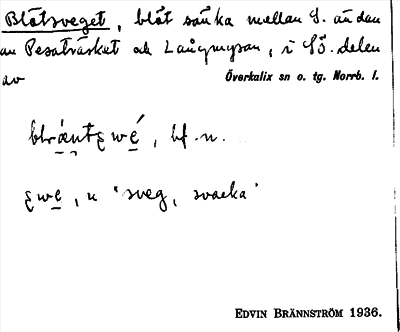 Blötsveget, blöt sänka mellan S. ändan
an Pesaträsket och Långmyran, i SÖ. delen
av Överkalix sn o. tg. Norrb. l.
bf. n.
n "sveg, svacka"
EDVIN BRÄNNSTRÖM 1936.